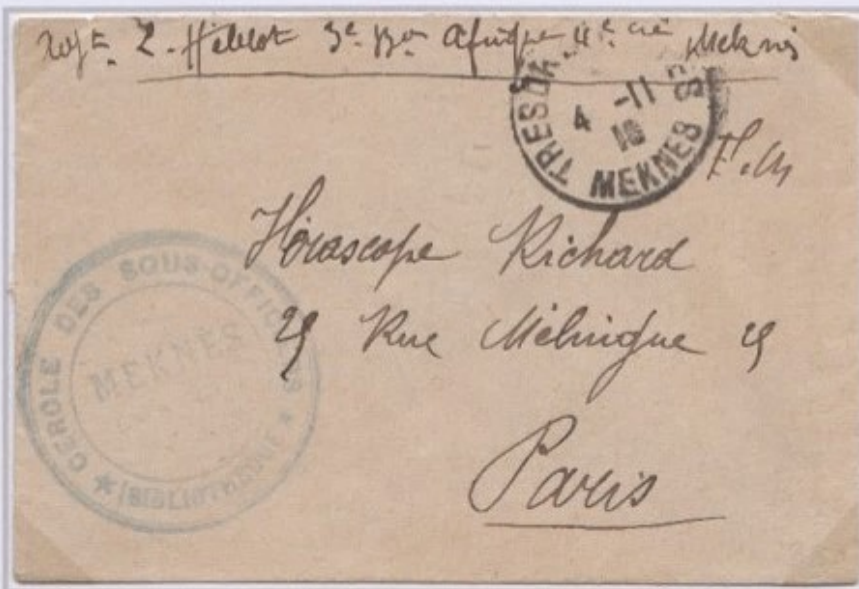 Sergt L. Hélelot 3e Bon Afrique 4e Cie Meknès
TRESOR
4 -11
16
MEKNES
F.M
Horascope Richard
29 Rue Mélingue 29
Paris
CERCLE DES SOUS-OFFICIERS
MEKNES
★ BIBLIOTHEQUE ★